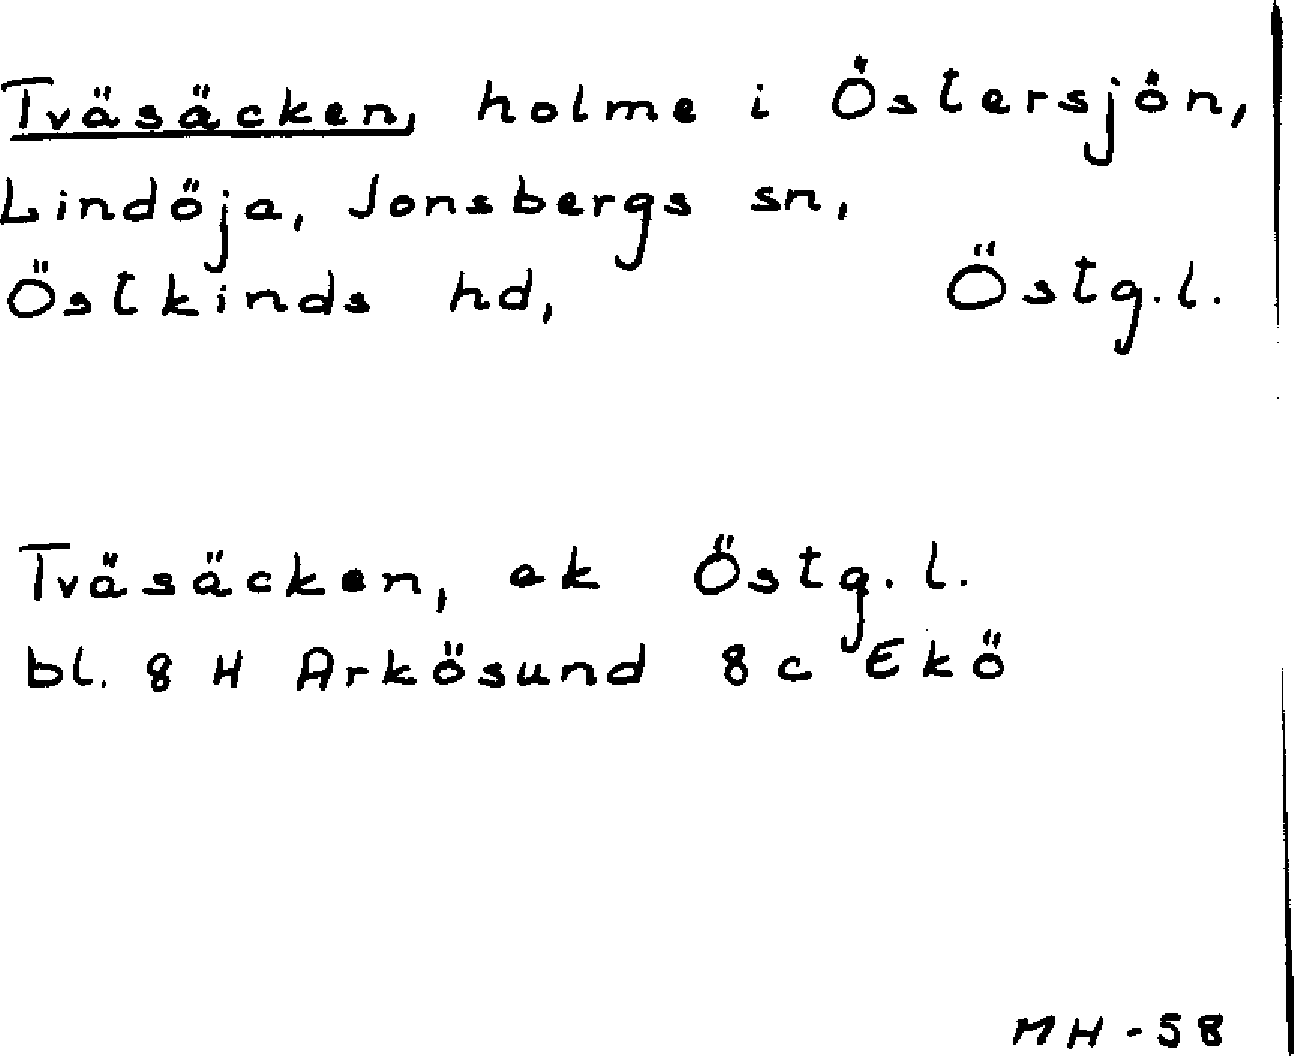 Tväsäcken, holme i Östersjön,
Lindöja, Jonsbergs sn,
Östkinds hd, Östg.l.
Tväsäcken, ek Östg.l.
bl. 8 H Arkösund 8 c Ekö
MH-58